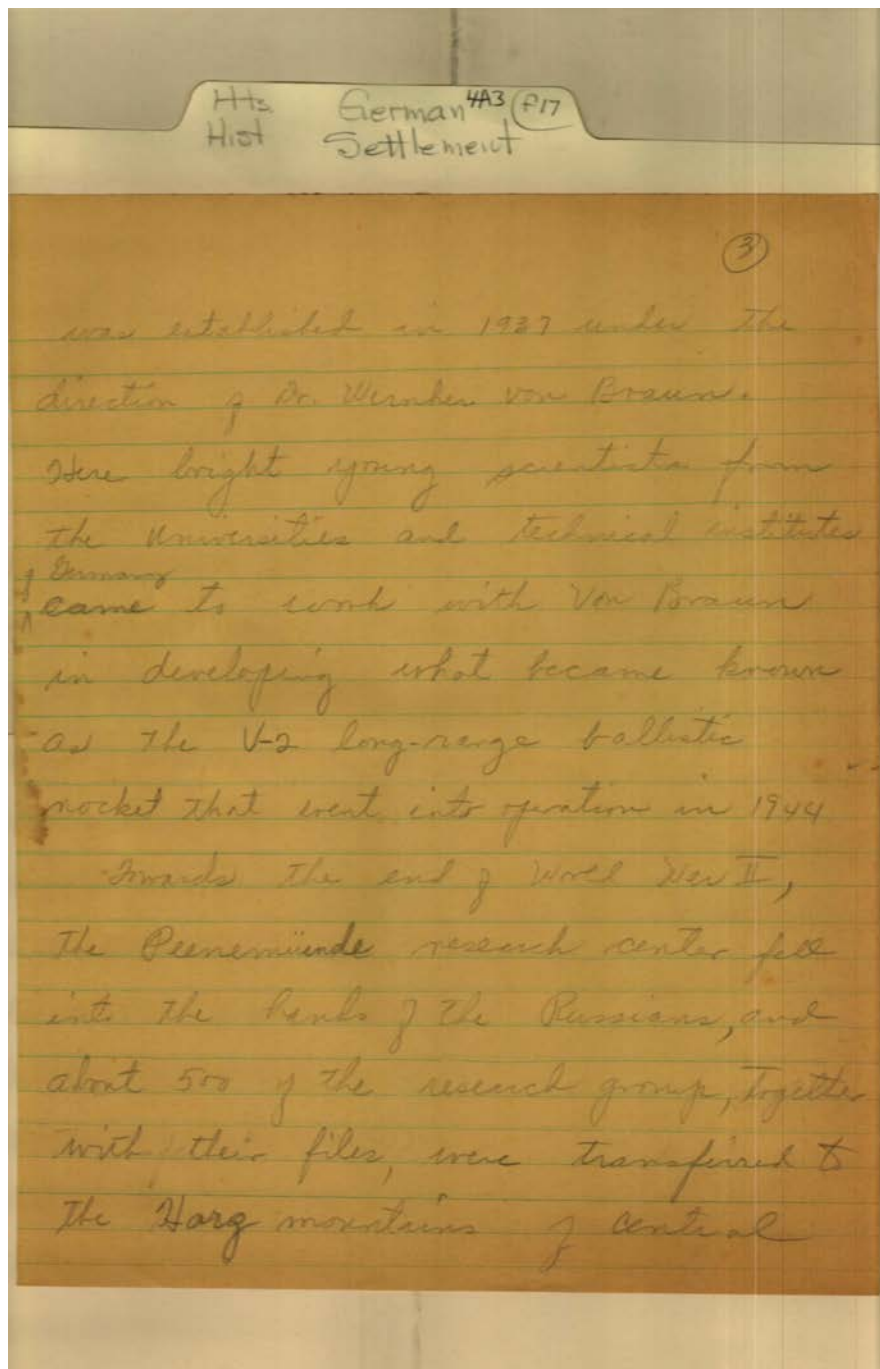 Hts. German 4A3 f17
Hist Settlement
3
was established in 1937 under the
direction of Dr. Wernher von Braun.
Here bright young scientists from
the Universities and technical institutes
of Germany
came to work with Von Braun
in developing what became known
as the V-2 long-range ballistic
rocket that went into operation in 1944
Towards the end of World War II,
the Peenemüende research center fell
into the hands of the Russians, and
about 500 of the research group, together
with their files, were transferred to
the Harz mountains of central